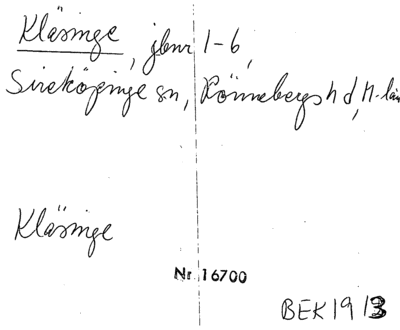 Kläsinge, jbnr 1-6,
Sireköpinge sn, Rönnebergs hd, M-län
Kläsinge
Nr 16700
BEK 1913